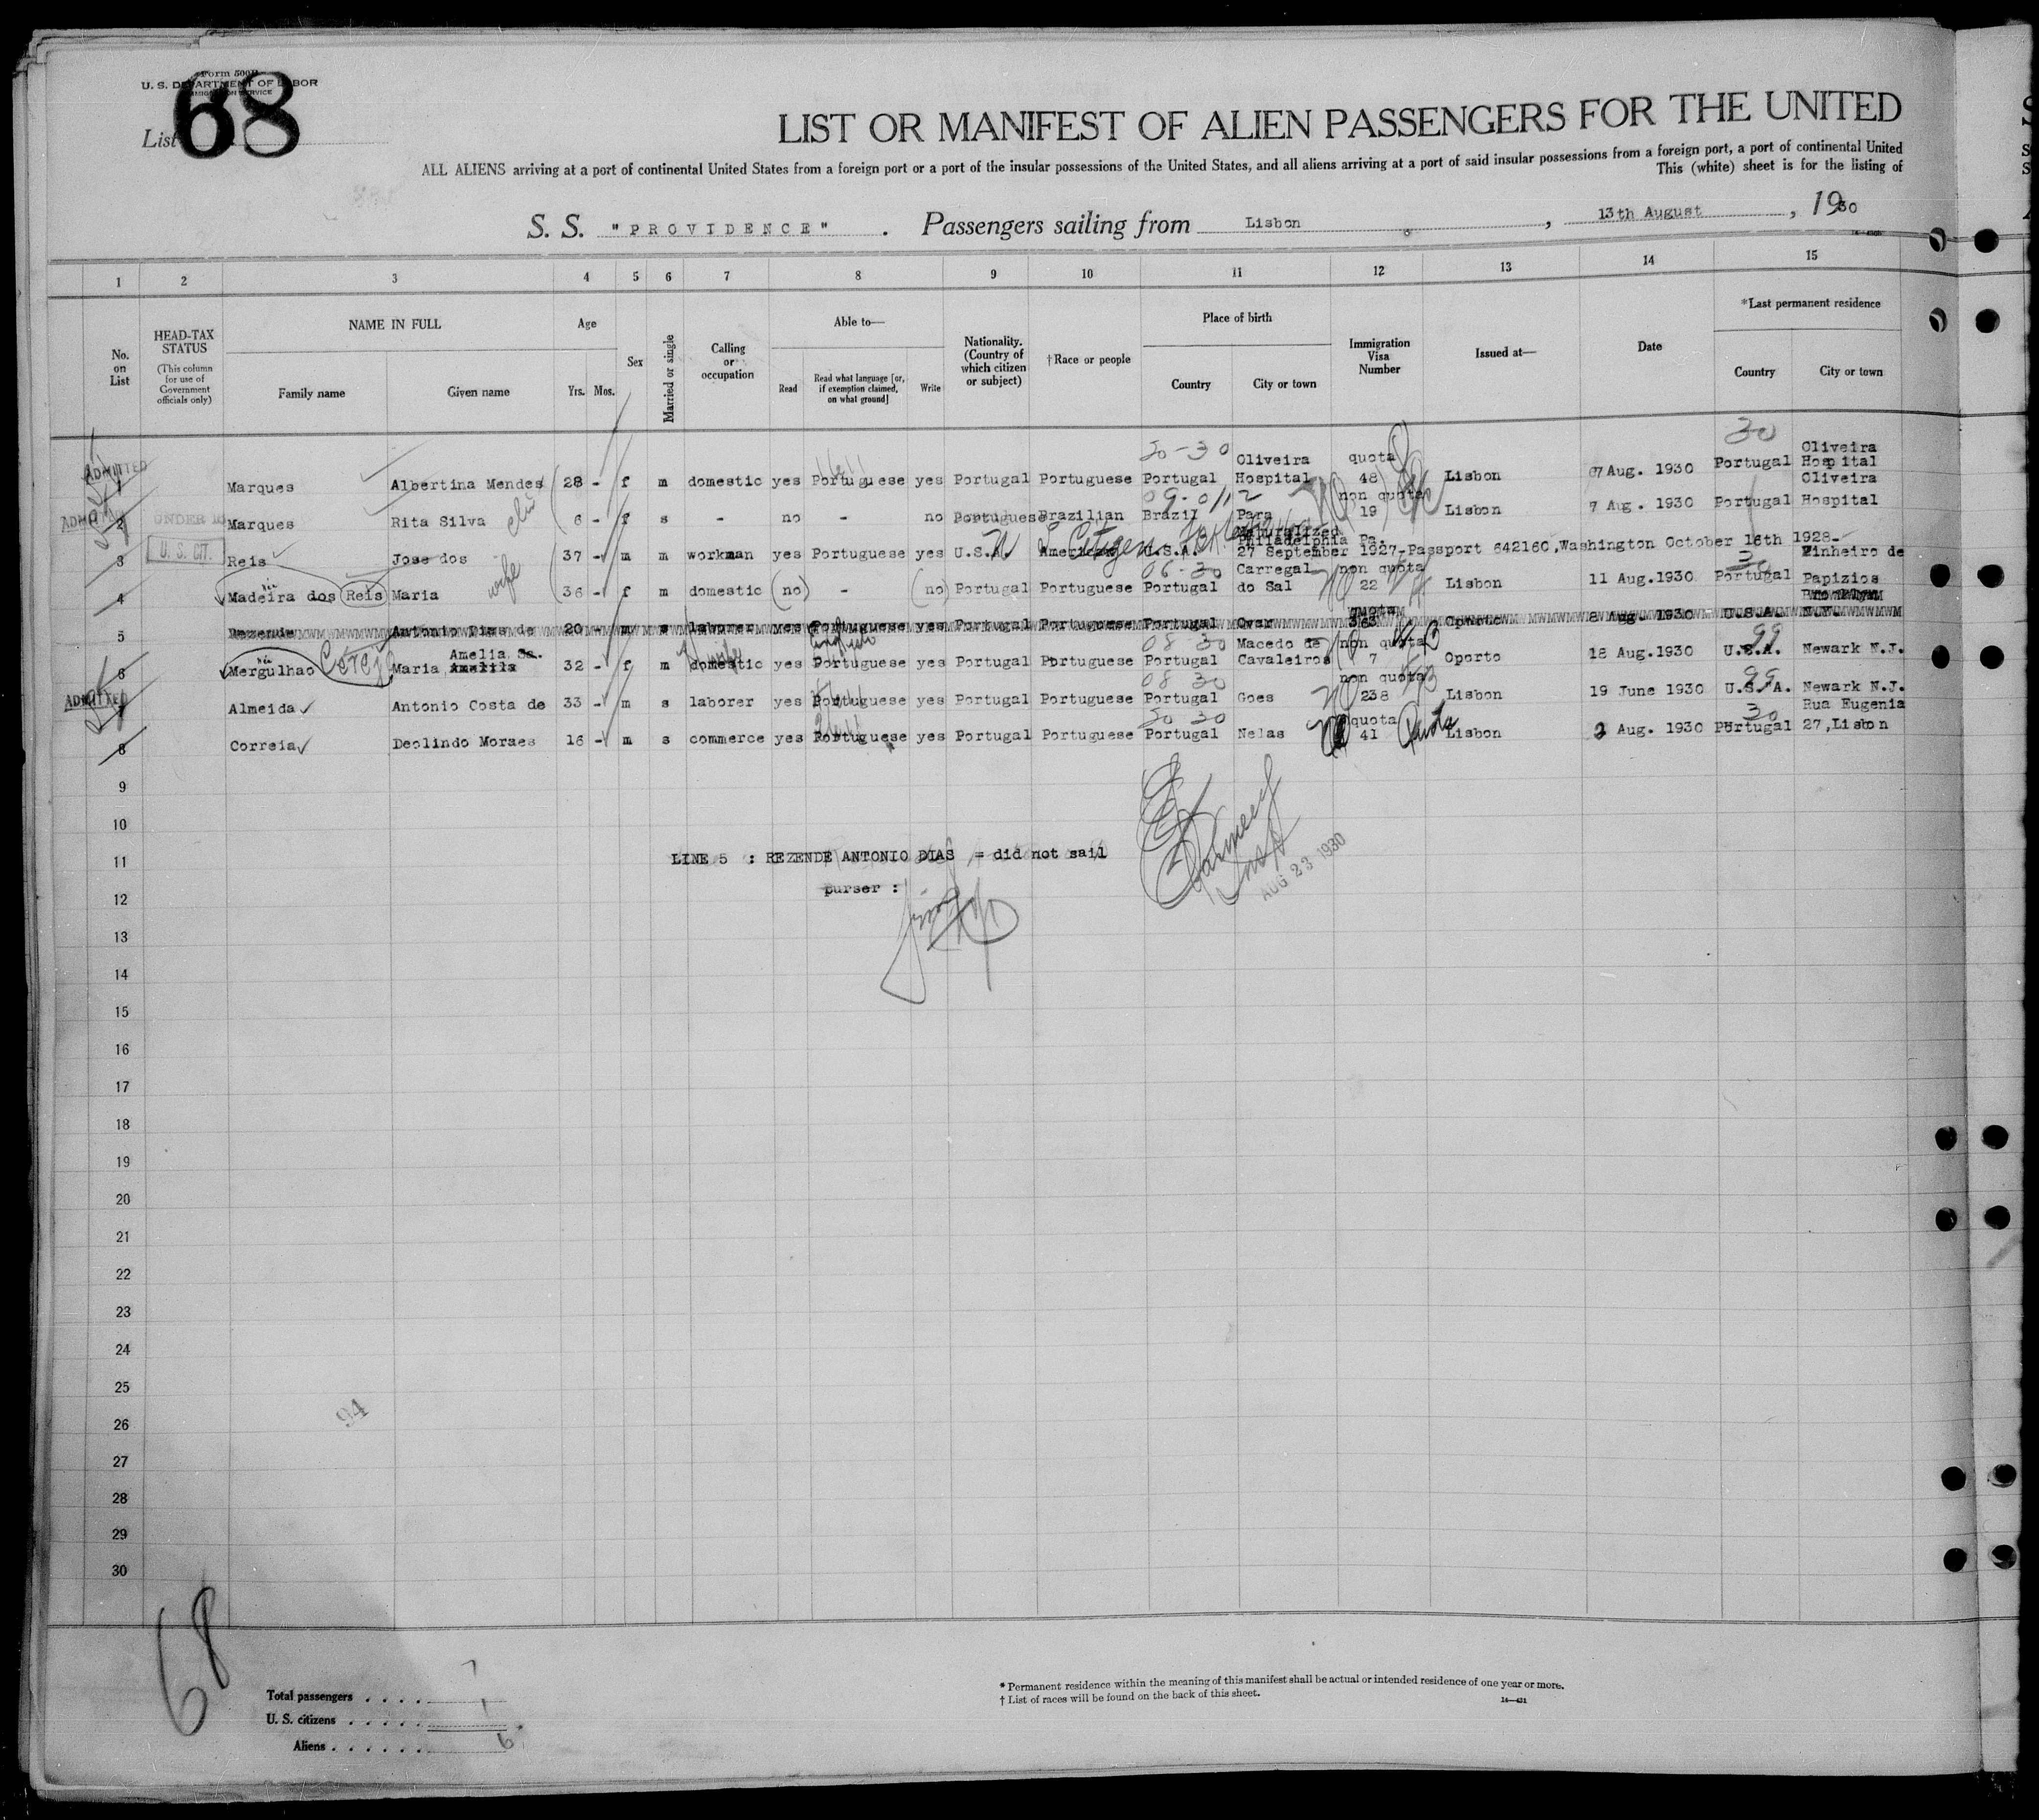 Form 500B
U. S. DEPARTMENT OF LABOR
IMMIGRATION SERVICE
List 68
LIST OR MANIFEST OF ALIEN PASSENGERS FOR THE UNITED
ALL ALIENS arriving at a port of continental United States from a foreign port or a port of the insular possessions of the United States, and all aliens arriving at a port of said insular possessions from a foreign port, a port of continental United
This (white) sheet is for the listing of
S. S. "PROVIDENCE" . Passengers sailing from Lisbon , 13th August , 1930
1 2 3 4 5 6 7 8 9 10 11 12 13 14 15
No. on List
HEAD-TAX STATUS
(This column for use of Government officials only)
NAME IN FULL
Family name Given name
Age
Yrs. Mos.
Sex
Married or single
Calling or occupation
Able to—
Read
Read what language [or, if exemption claimed, on what ground]
Write
Nationality. (Country of which citizen or subject)
†Race or people
Place of birth
Country City or town
Immigration Visa Number
Issued at—
Date
*Last permanent residence
Country City or town
ADMITTED Marques Albertina Mendes 28 - f m domestic yes Portuguese yes Portugal Portuguese 50-30 Portugal Oliveira Hospital quota 48 Lisbon 7 Aug. 1930 30 Portugal Oliveira Hospital
2 UNDER 16 Marques Rita Silva 6 - f s - no - no Portuguese Brazilian Brazil Para non quota 19 Lisbon 7 Aug. 1930 Portugal Oliveira Hospital
3 U. S. CIT. Reis Jose dos 37 - m m workman yes Portuguese yes U.S.A. American U.S.A. Naturalized Philadelphia Pa. 27 September 1927-Passport 642160, Washington October 16th 1928-
4 née Madeira dos Reis Maria wife 36 - f m domestic (no) - (no) Portugal Portuguese 06-30 Portugal Carregal do Sal non quota 22 Lisbon 11 Aug. 1930 30 Portugal Pinheiro de Papizios
5 Rezende Antonio Dias de 20 - m s laborer yes Portuguese yes Portugal Portuguese Portugal Ovar quota 363 Oporto 8 Aug. 1930 U.S.A. N.Y.
6 née Mergulhao Maria Amelia 32 - f m domestic wife yes Portuguese yes Portugal Portuguese 08 30 Portugal Macedo de Cavaleiros non quota 7 Oporto 18 Aug. 1930 99 U.S.A. Newark N.J.
ADMITTED 7 Almeida Antonio Costa de 33 - m s laborer yes Portuguese yes Portugal Portuguese 08 30 Portugal Goes non quota 238 Lisbon 19 June 1930 99 U.S.A. Newark N.J.
8 Correia Deolindo Moraes 16 - m s commerce yes Portuguese yes Portugal Portuguese 50 30 Portugal Nelas quota 41 Lisbon 2 Aug. 1930 30 Portugal Rua Eugenia 27, Lisbon
9
10
11 LINE 5 : REZENDE ANTONIO DIAS = did not sail
AUG 23 1930
12 purser :
13
14
15
16
17
18
19
20
21
22
23
24
25
26
94
27
28
29
30
68
Total passengers . . . . 7
U. S. citizens . . . . . . 1
Aliens . . . . . . 6
* Permanent residence within the meaning of this manifest shall be actual or intended residence of one year or more.
† List of races will be found on the back of this sheet.
14—431